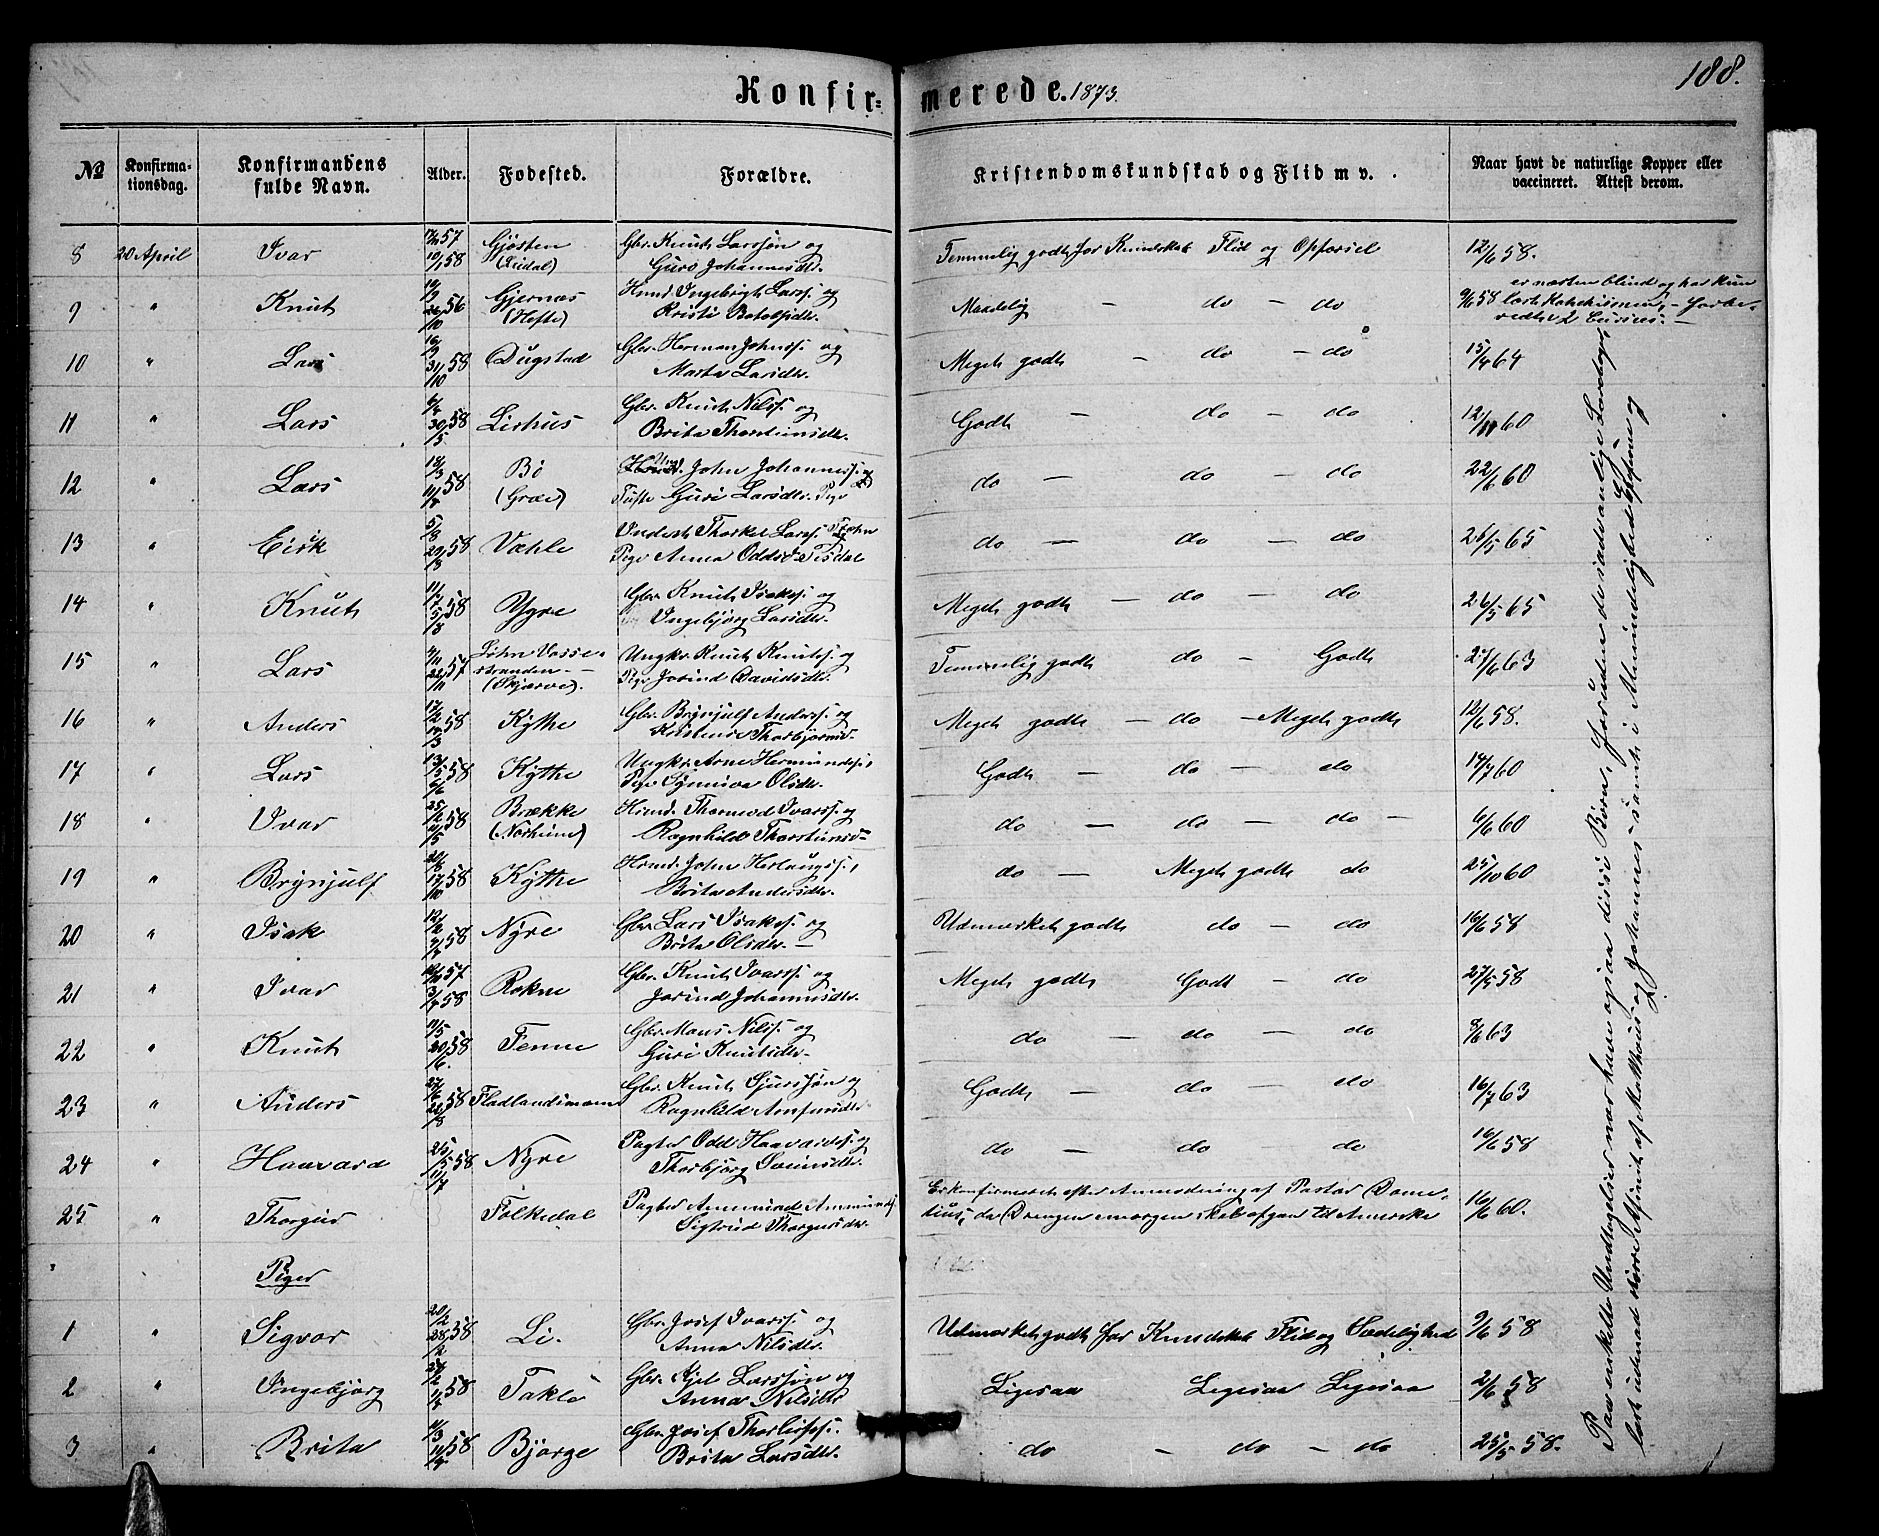 188.
Konfirmerede. 1873.
No
Konfirmationsdag.
Konfirmandens fulde Navn.
Alder.
Fødested.
Forældre.
Kristendomskundskab og Flid m v.
Naar havt de naturlige Kopper eller vaccineret. Attest derom.
8 20 April Ivar 57 10/1 58 Gjøsten Gbr. Knut Larssøn og Guro Johannesdtr. Temmelig godt for Kundskab Flid og Opførsel 12/6 58.
9 " Knut 56 Gjernæs (Hefte) Hmd. Ingebrigt Larss. og Kristi Botolfsdtr. Maadelig - do - do 9/6 58 er næsten blind og har kun lært Katekismen,
10 " Lars 31/10 58 Dugstad Gbr. Herman Johnss. og Marta Larsdtr. Meget godt - do - do 15/4 64
11 " Lars 30/5 58 Lirhus Gbr. Knut Nilss. og Brita Thorsteinsdtr. Godt - do - do 12/11 60
12 " Lars 18/3 58 Bø (Græe) John Johanness. og Guri Larsdtr. do - do - do 22/6 60
13 " Eirik 5/8 29/8 58 Væhle Inderst Thorkel Larss. Pige Anna Oddsd. do - do - do 26/5 65
14 " Knut 58 Ygre Gbr. Knut Isaks. og Ingebjørg Larsdtr. Meget godt - do - do 26/5 65
15 " Lars 22/11 57 (Skjerve). Ungkr. Knut Knuts. og Pige Jorind Davidsdtr. Temmelig godt do - Godt 27/6 63
16 " Anders 58 Kythe Gbr. Brynjulf Anderss. og Thorbjørnsd. Meget godt - do - Meget godt 12/6 58.
17 " Lars 13/5 6/6 58 Kythe Ungkr. Arne Hermunds. Pige Synneva Olsdtr. Godt - do - do 14/7 60
18 " Ivar 58 Brække (Norheim) Hmd. Thormod Ivarss. og Ragnhild Thorsteinsd. do - do - do - 6/6 60
19 " Brynjulf 58 Kythe Hmd. John Herlaugss., Brita Andersdtr. do - Meget godt do 25/10 60
20 " Isak 58 Nyre Gbr. Lars Isaks. og Brita Olsdtr. - Udmærket godt do - do 16/6 58
21 " Ivar 57 58 Rokne Gbr. Knut Ivarss. og Jorind Johannesdtr. Meget godt Godt - do 27/5 58
22 " Knut 11/5 20/6. 58 Tenne Gbr. Mons Nilss. og Guri Knutsdtr. do - do - do 8/6 63
23 " Anders 22/8 58 Fladlandsmoen Gbr. Knut Sjurssøn og Ragnhild Amfinsdtr. Godt - do - do 16/7 63
24 " Haavard 25/5 11/7 58 Nyre Pagter Odd Haavards. og Thorbjørg Sveinsdtr. do - do - do 16/6 58
25 " Thorgeir Folkedal Pagter Ammund Ammunds. Sigtrud Thorgeirsdtr. Er konfirmeret efter Anmodning af Pastor da Drengen imorgen skal afgaa til Amerika 16/6 60.
Piger
1 " Sigvor 20/2 28/2 58 Li. Gbr. Josef Ivarss. og Anna Nilsdtr. Udmærket godt for Kundskab Flid og Sædelighed 9/6 58
2 " Ingebjørg 58 Takle Gbr. Kjel Larssøn og Anna Nilsdtr Ligesaa Ligesaa Ligesaa 2/6 58
3 " Brita 58 Bjørge Gbr. Josef Thorleifss. Brita Larsdtr. do - do - do 25/5 58.
Paa enkelte Undtagelser nær have ogsaa disse Børn, foruden de sædvanlige Lærebøger, lært udenad større Afsnit af Mathæus og Johannes samt i Almindelighed